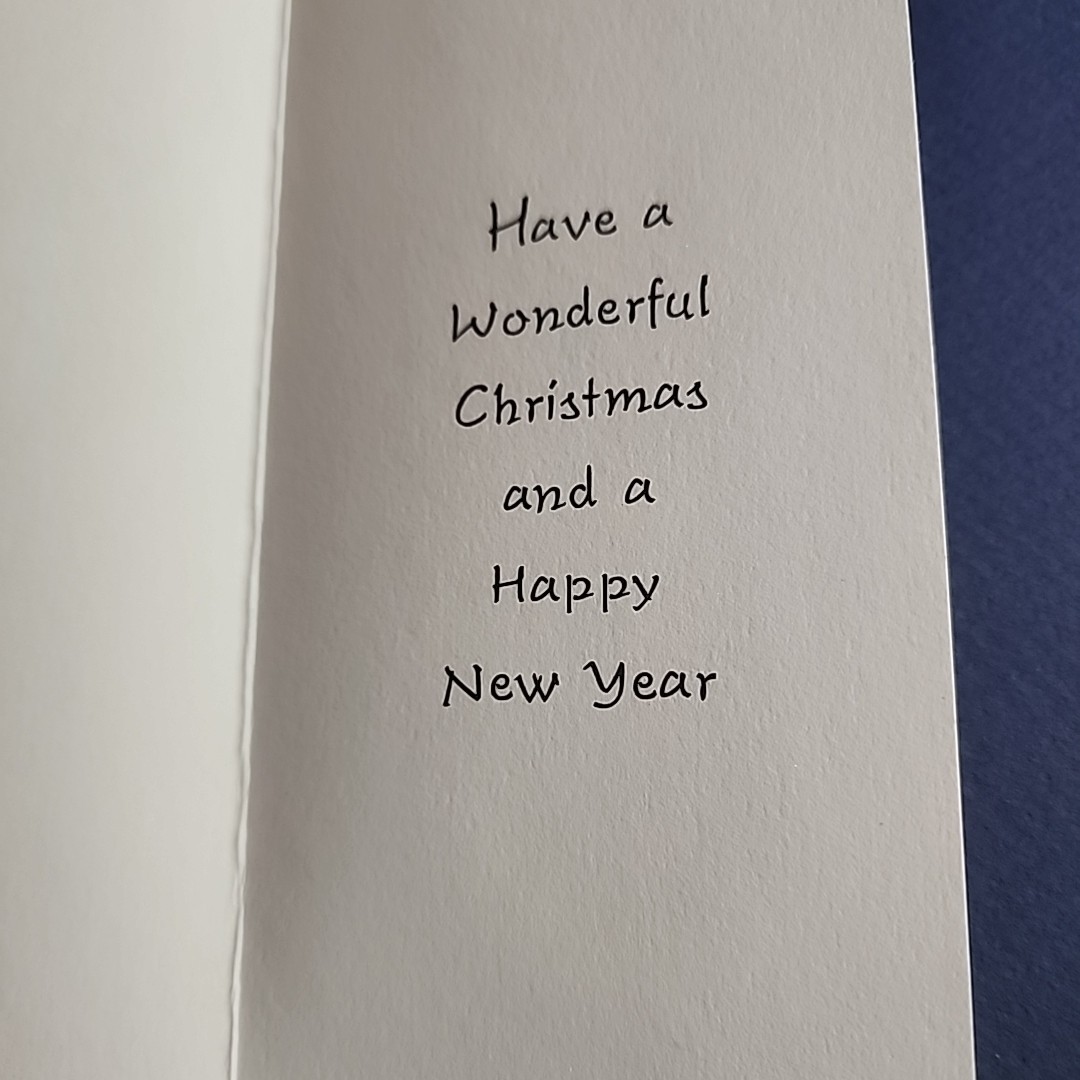 Have a
Wonderful
Christmas
and a
Happy
New Year